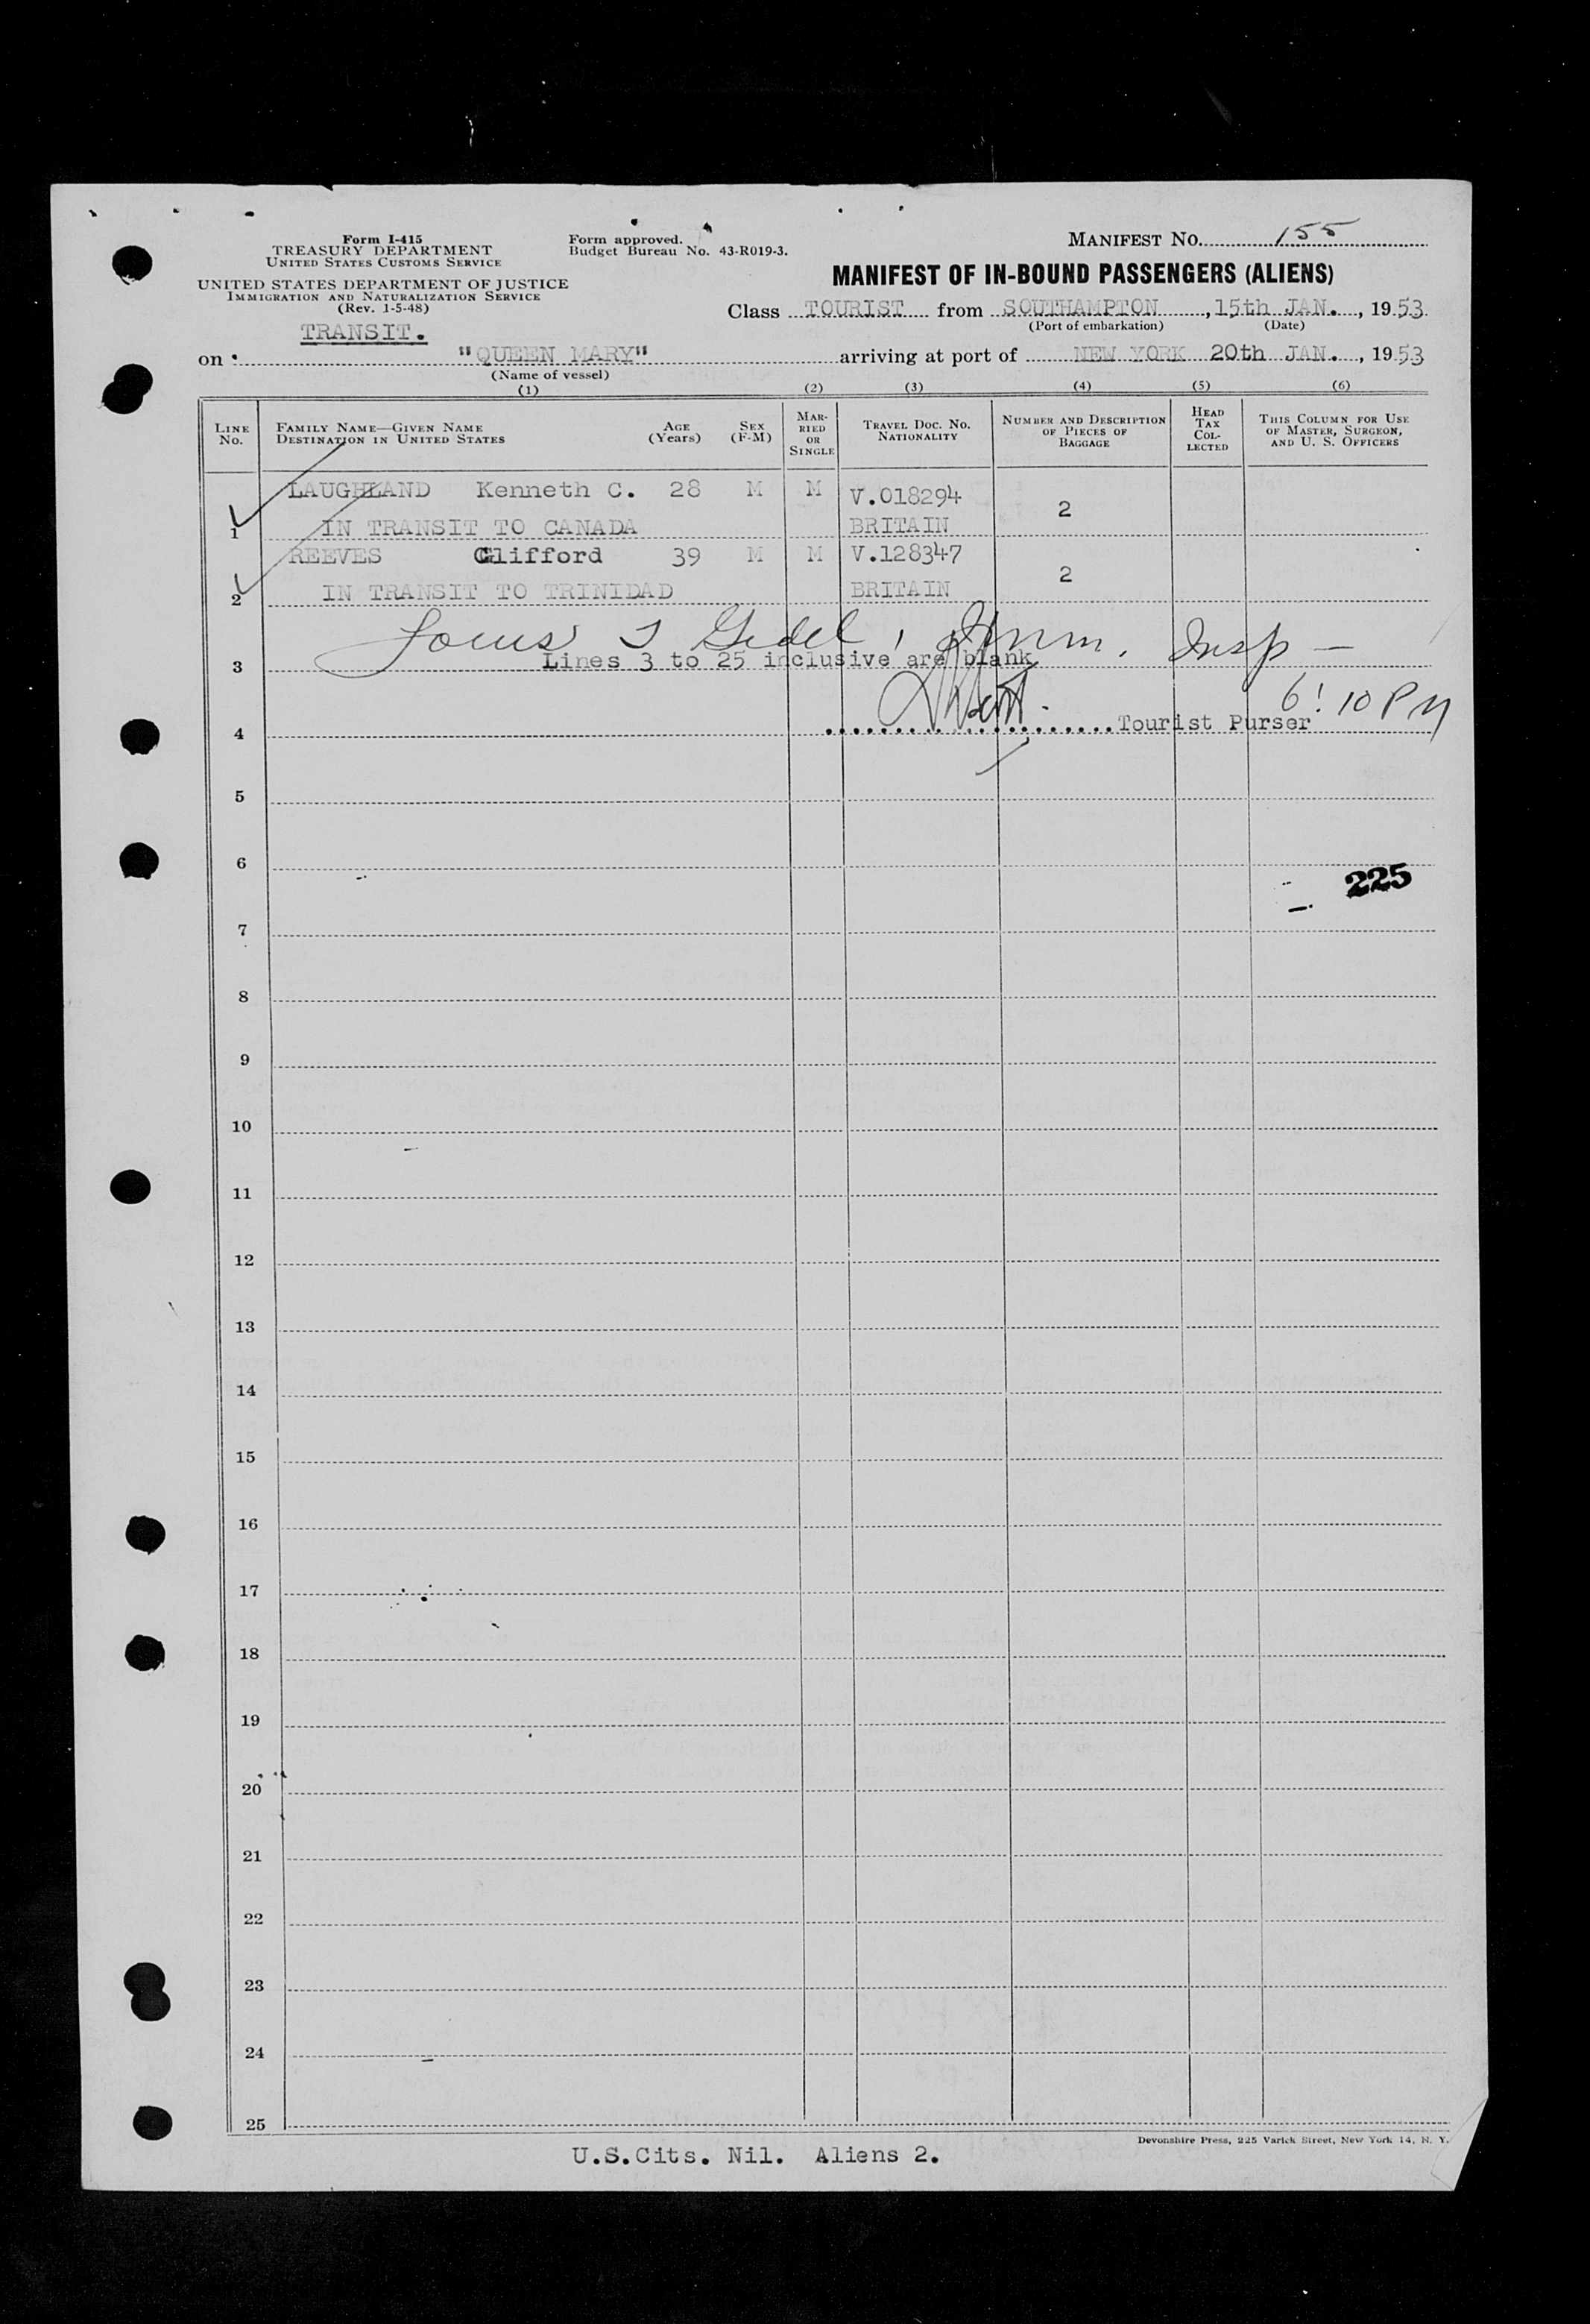 Form I-415
TREASURY DEPARTMENT
UNITED STATES CUSTOMS SERVICE
UNITED STATES DEPARTMENT OF JUSTICE
IMMIGRATION AND NATURALIZATION SERVICE
(Rev. 1-5-48)
TRANSIT.
Form approved.
Budget Bureau No. 43-R019-3.
MANIFEST NO. 155
MANIFEST OF IN-BOUND PASSENGERS (ALIENS)
Class TOURIST from SOUTHAMPTON, 15th JAN., 1953
(Port of embarkation) (Date)
on "QUEEN MARY" arriving at port of NEW YORK 20th JAN., 1953
(Name of vessel)
(1) (2) (3) (4) (5) (6)
LINE NO. FAMILY NAME—GIVEN NAME DESTINATION IN UNITED STATES AGE (Years) SEX (F-M) MARRIED OR SINGLE TRAVEL DOC. NO. NATIONALITY NUMBER AND DESCRIPTION OF PIECES OF BAGGAGE HEAD TAX COLLECTED THIS COLUMN FOR USE OF MASTER, SURGEON, AND U. S. OFFICERS
LAUGHLAND Kenneth C. 28 M M V.018294 2
1 IN TRANSIT TO CANADA BRITAIN
REEVES Clifford 39 M M V.128347 2
2 IN TRANSIT TO TRINIDAD BRITAIN
Imm. Insp —
3 Lines 3 to 25 inclusive are blank
6:10 PM
4 Tourist Purser
5
6
225
7
8
9
10
11
12
13
14
15
16
17
18
19
20
21
22
23
24
25
Devonshire Press, 225 Varick Street, New York 14, N. Y.
U.S.Cits. Nil. Aliens 2.